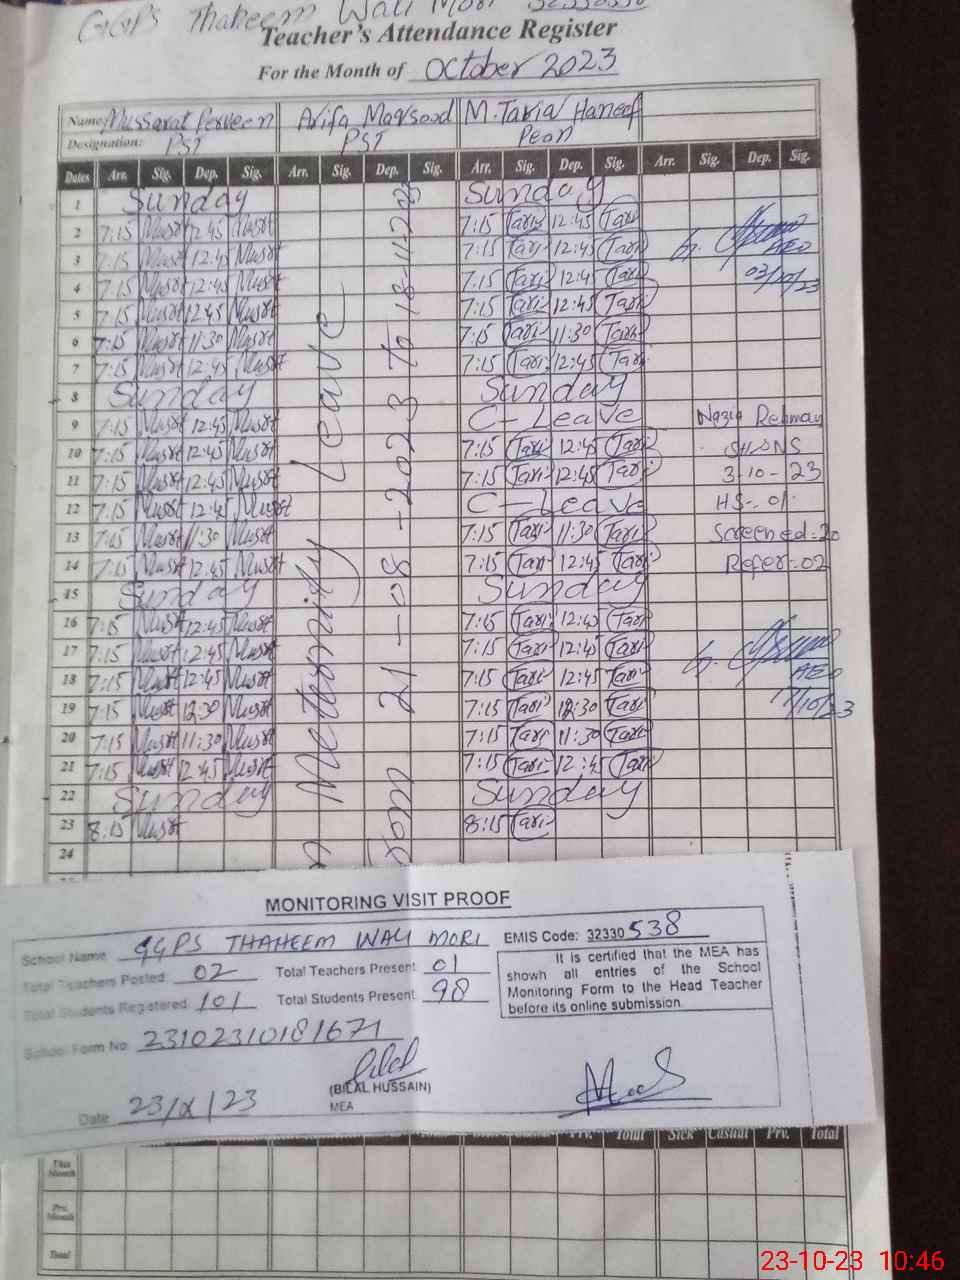 GGPS Thaheem Wali Mori
Teacher's Attendance Register
For the Month of October 2023
Name: Mussarat Perveen Arifa Maqsood M. Tariq Haneef
Designation: PST PST Pean
Dates Arr. Sig. Dep. Sig. Arr. Sig. Dep. Sig. Arr. Sig. Dep. Sig. Arr. Sig. Dep. Sig.
1 Sunday Sunday
2 7:15 Musrt 12:45 Musrt 7:15 Tari 12:45 Tari
3 7:15 Musrt 12:45 Musrt 7:15 Tari 12:45 Tari AEO
4 7:15 Musrt 12:45 Musrt 7:15 Tari 12:45 Tari 03/10/23
5 7:15 Musrt 12:45 Musrt 7:15 Tari 12:45 Tari
6 7:15 Musrt 11:30 Musrt 7:15 Tari 11:30 Tari
7 7:15 Musrt 12:45 Musrt 7:15 Tari 12:45 Tari
8 Sunday Sunday
9 7:15 Musrt 12:45 Musrt C-Leave Nazia Rehman
10 7:15 Musrt 12:45 Musrt 7:15 Tari 12:45 Tari SH&NS
11 7:15 Musrt 12:45 Musrt 7:15 Tari 12:45 Tari 3-10-23
12 7:15 Musrt 12:45 Musrt C-Leave HS-01
13 7:15 Musrt 11:30 Musrt 7:15 Tari 11:30 Tari Screened=20
14 7:15 Musrt 12:45 Musrt 7:15 Tari 12:45 Tari Refer-02
15 Sunday Sunday
16 7:15 Musrt 12:45 Musrt 7:15 Tari 12:45 Tari
17 7:15 Musrt 12:45 Musrt 7:15 Tari 12:45 Tari
18 7:15 Musrt 12:45 Musrt 7:15 Tari 12:45 Tari AEO
19 7:15 Musrt 12:30 Musrt 7:15 Tari 12:30 Tari 17/10/23
20 7:15 Musrt 11:30 Musrt 7:15 Tari 11:30 Tari
21 7:15 Musrt 12:45 Musrt 7:15 Tari 12:45 Tari
22 Sunday Sunday
23 8:15 Musrt 8:15 Tari
24
Meternity Leave
21-08-2023 to 18-11-2023
MONITORING VISIT PROOF
School Name GGPS THAHEEM WALI MORI EMIS Code: 32330538
Total Teachers Posted 02 Total Teachers Present 01
Total Students Registered 101 Total Students Present 98
It is certified that the MEA has
shown all entries of the School
Monitoring Form to the Head Teacher
before its online submission.
School Form No. 23102310181671
(BILAL HUSSAIN)
MEA
Date 23/X/23
Prv. Total Sick Casual Prv. Total
This Month
Prv. Month
Total
23-10-23 10:46